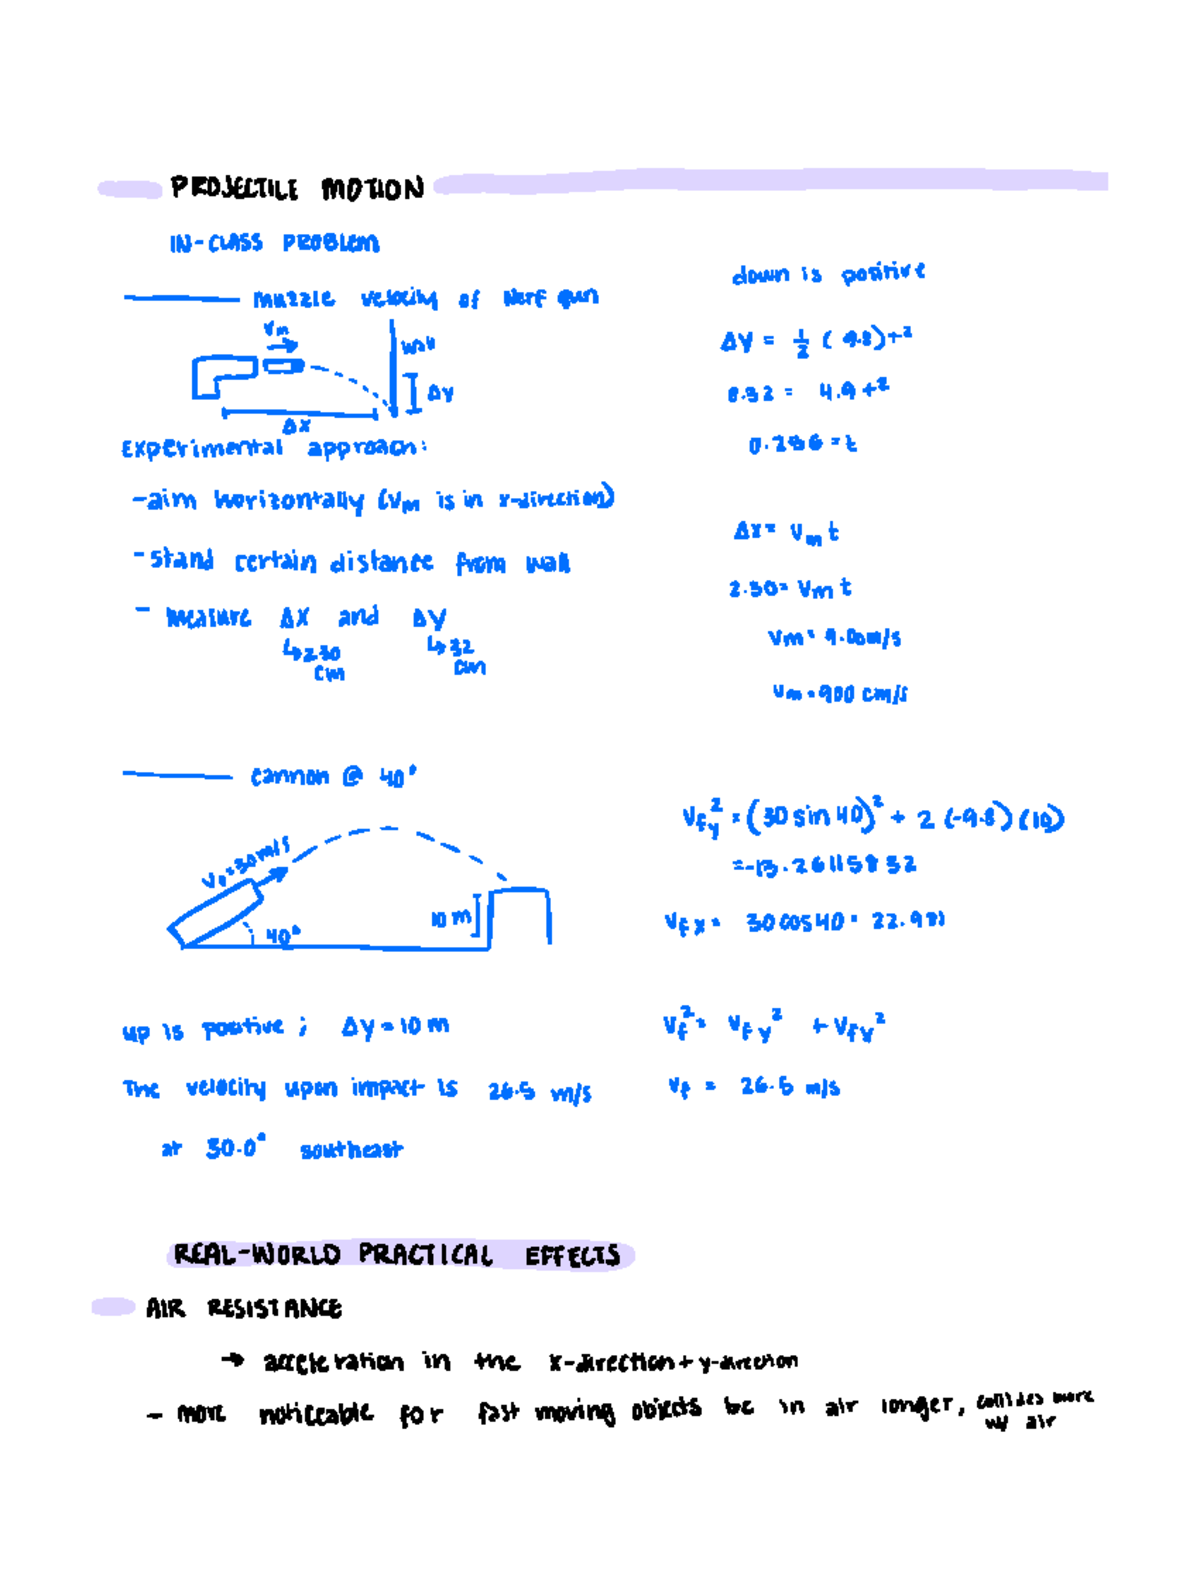 PROJECTILE MOTION
IN-CLASS PROBLEM
muzzle velocity of Nerf gun
Vm
wall
Δy
Δx
Experimental approach:
-aim horizontally (Vm is in x-direction)
-stand certain distance from wall
- measure Δx and Δy
↳230 cm
↳32 cm
down is positive
Δy = 1/2 (9.8)t²
0.32 = 4.9t²
0.256=t
Δx= Vm t
2.30= Vm t
Vm= 9.00m/s
Vm=900 cm/s
cannon @ 40°
V₀=30m/s
40°
10 m
up is positive; Δy=10m
The velocity upon impact is 26.5 m/s
at 30.0° southeast
Vfy² = (30 sin 40)² + 2 (-9.8)(10)
=-13.26115832
Vfx= 30cos40= 22.981
Vf²= Vfy² + Vfy²
Vf = 26.5 m/s
REAL-WORLD PRACTICAL EFFECTS
AIR RESISTANCE
→ acceleration in the x-direction+y-direction
- more noticeable for fast moving objects bc in air longer, collides more
w/ air